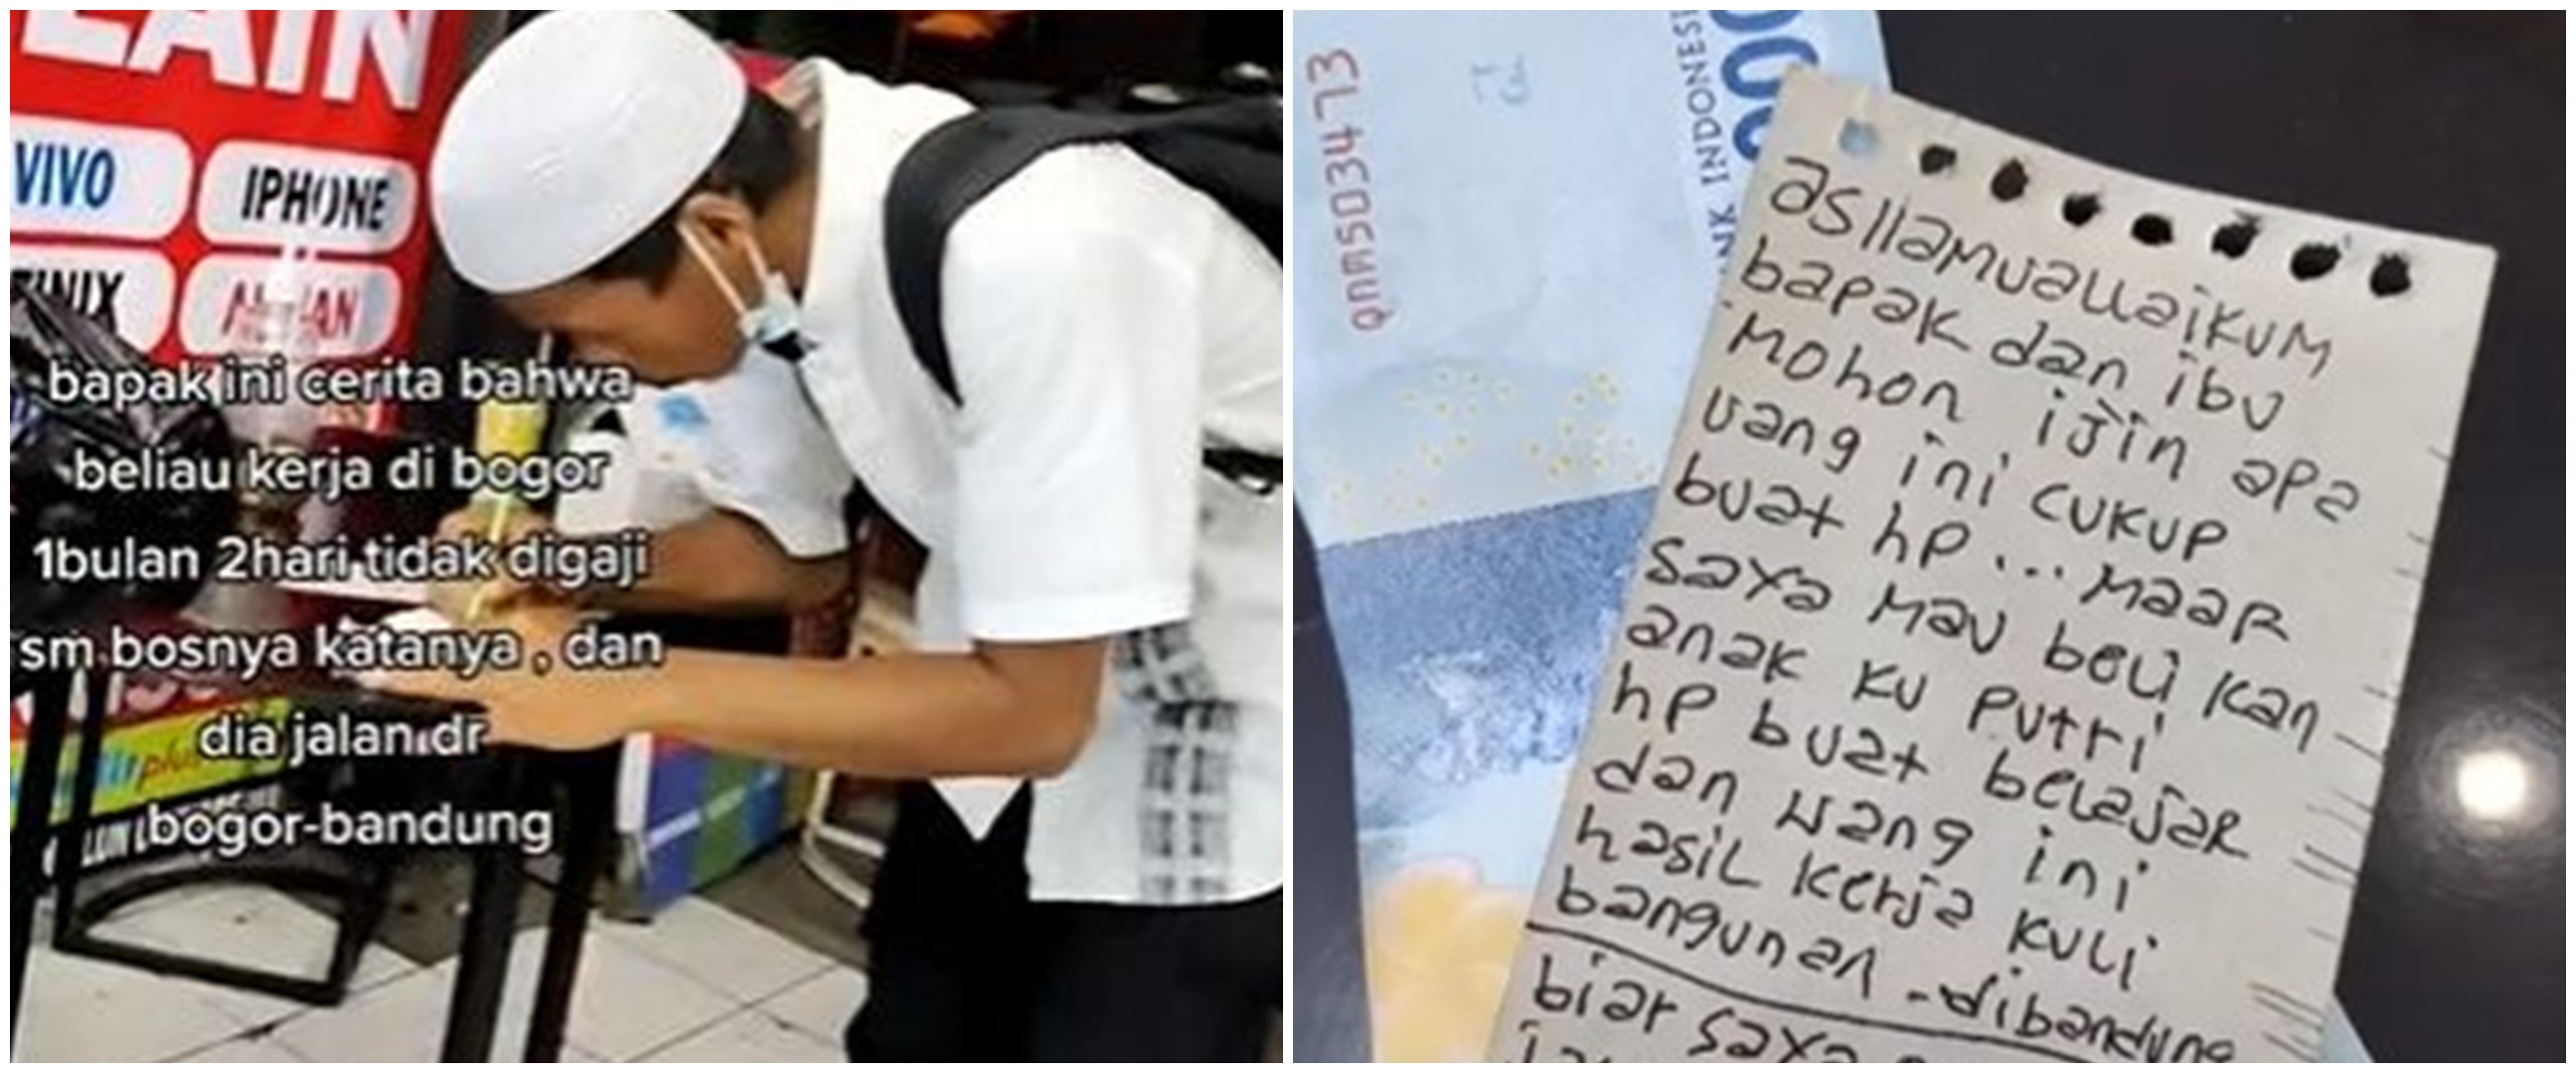 LAIN
VIVO
IPHONE
bapak ini cerita bahwa
beliau kerja di bogor
1bulan 2hari tidak digaji
sm bosnya katanya , dan
dia jalan dr
bogor-bandung
plus
QNM5034713
INDONES
asllamuallaikum
bapak dan ibu
Mohon ijin apa
uang ini cukup
buat hp ... maaf
saya mau beli kan
anak ku putri
hp buat belajar
dan uang ini
hasil kerja kuli
bangunan - dibandung
biar saya